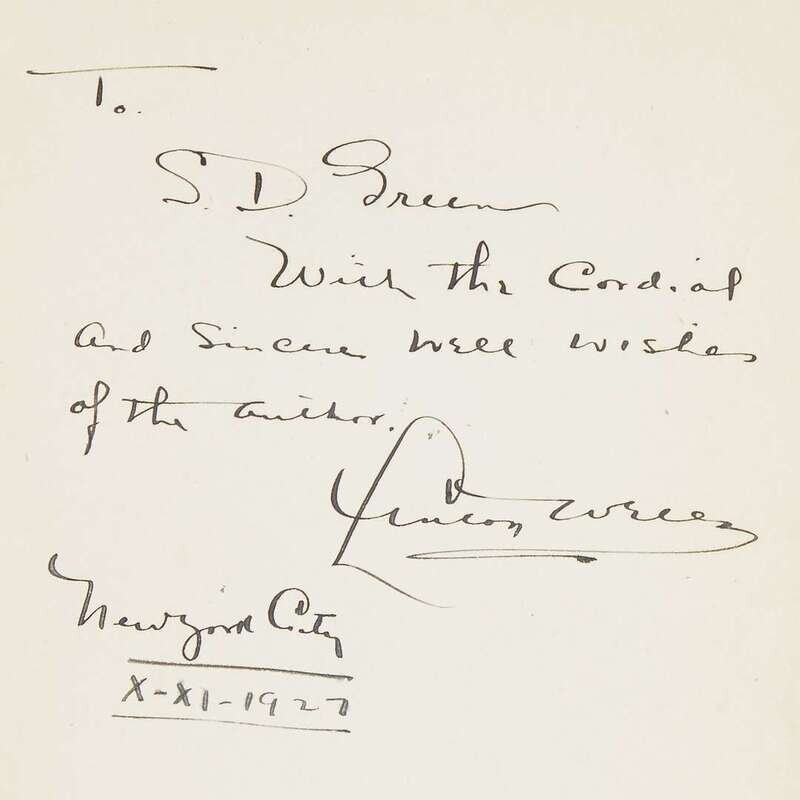 To.
S. D. Green
With the Cordial
and Sincere well wishes
of the author.
Linton Wells
New York City
X-XI-1927